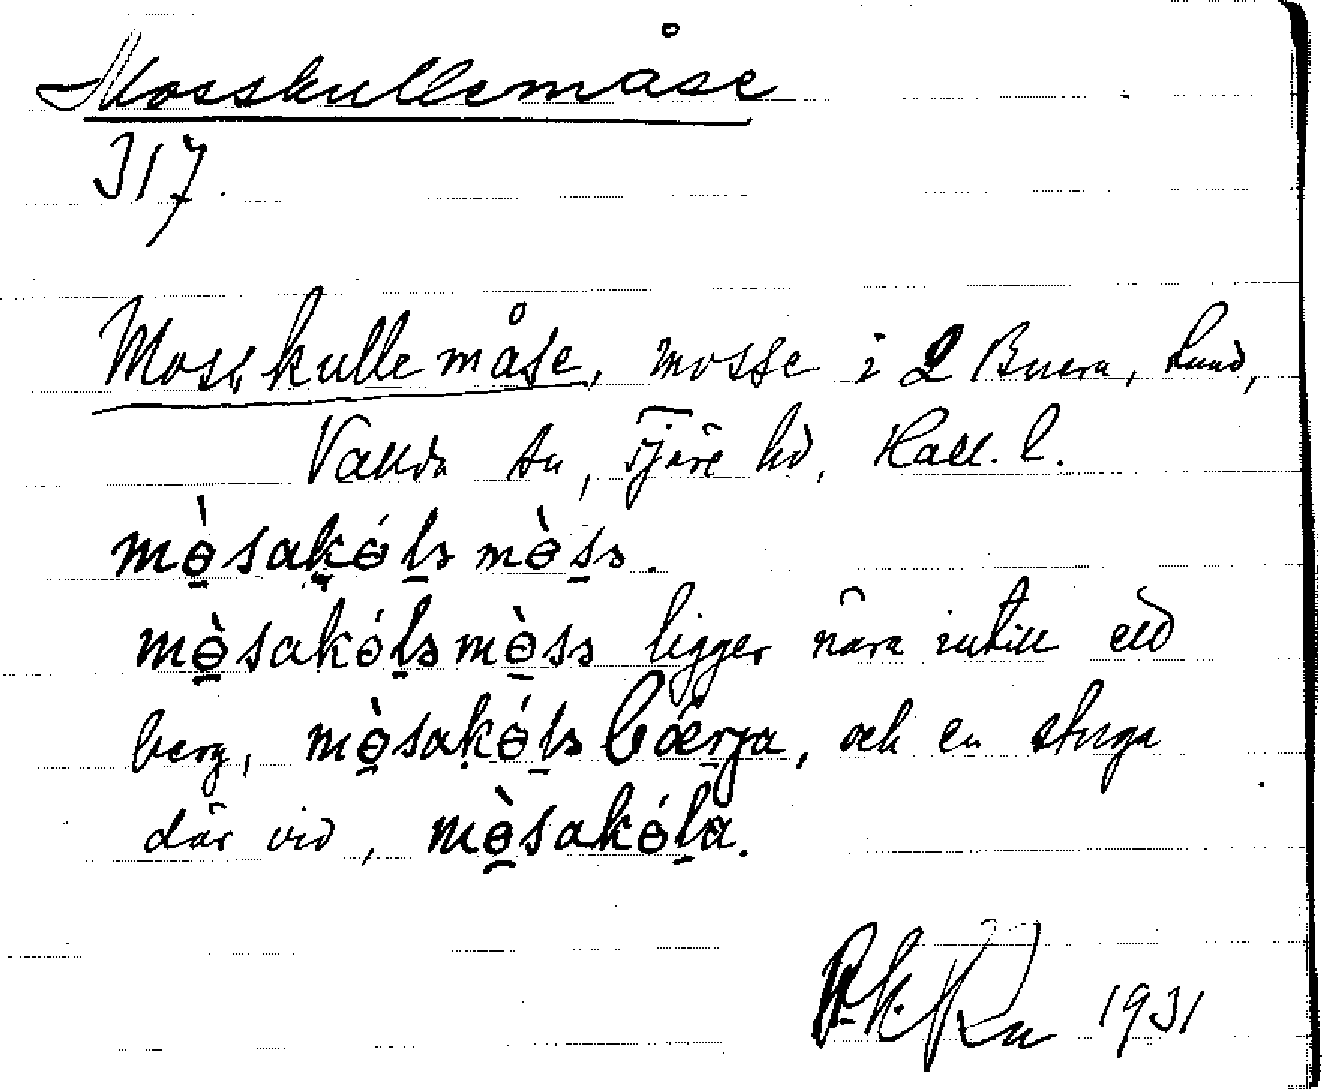 Mosskullemåse
317.
Mosskullemåse, mosse i 2 Buera, Lund,
Vallda sn, Fjäre hd, Hall. l.
mɵ̀sakɵ́lə mɵ̀sə.
mɵ̀sakɵ́lə mɵ̀sə ligger nära intill ett
berg, mɵ̀sakɵ́lə bǽrja, och en stuga
där vid, mɵ̀sakɵ́la.
1931